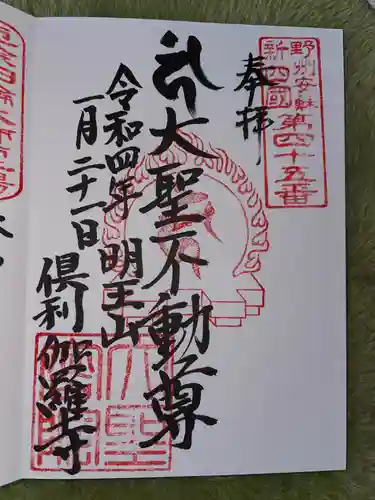 奉拝
野州安蘇
新四國
第四十五番
大聖不動尊
令和四年
一月二十一日
明王山
倶利伽羅寺